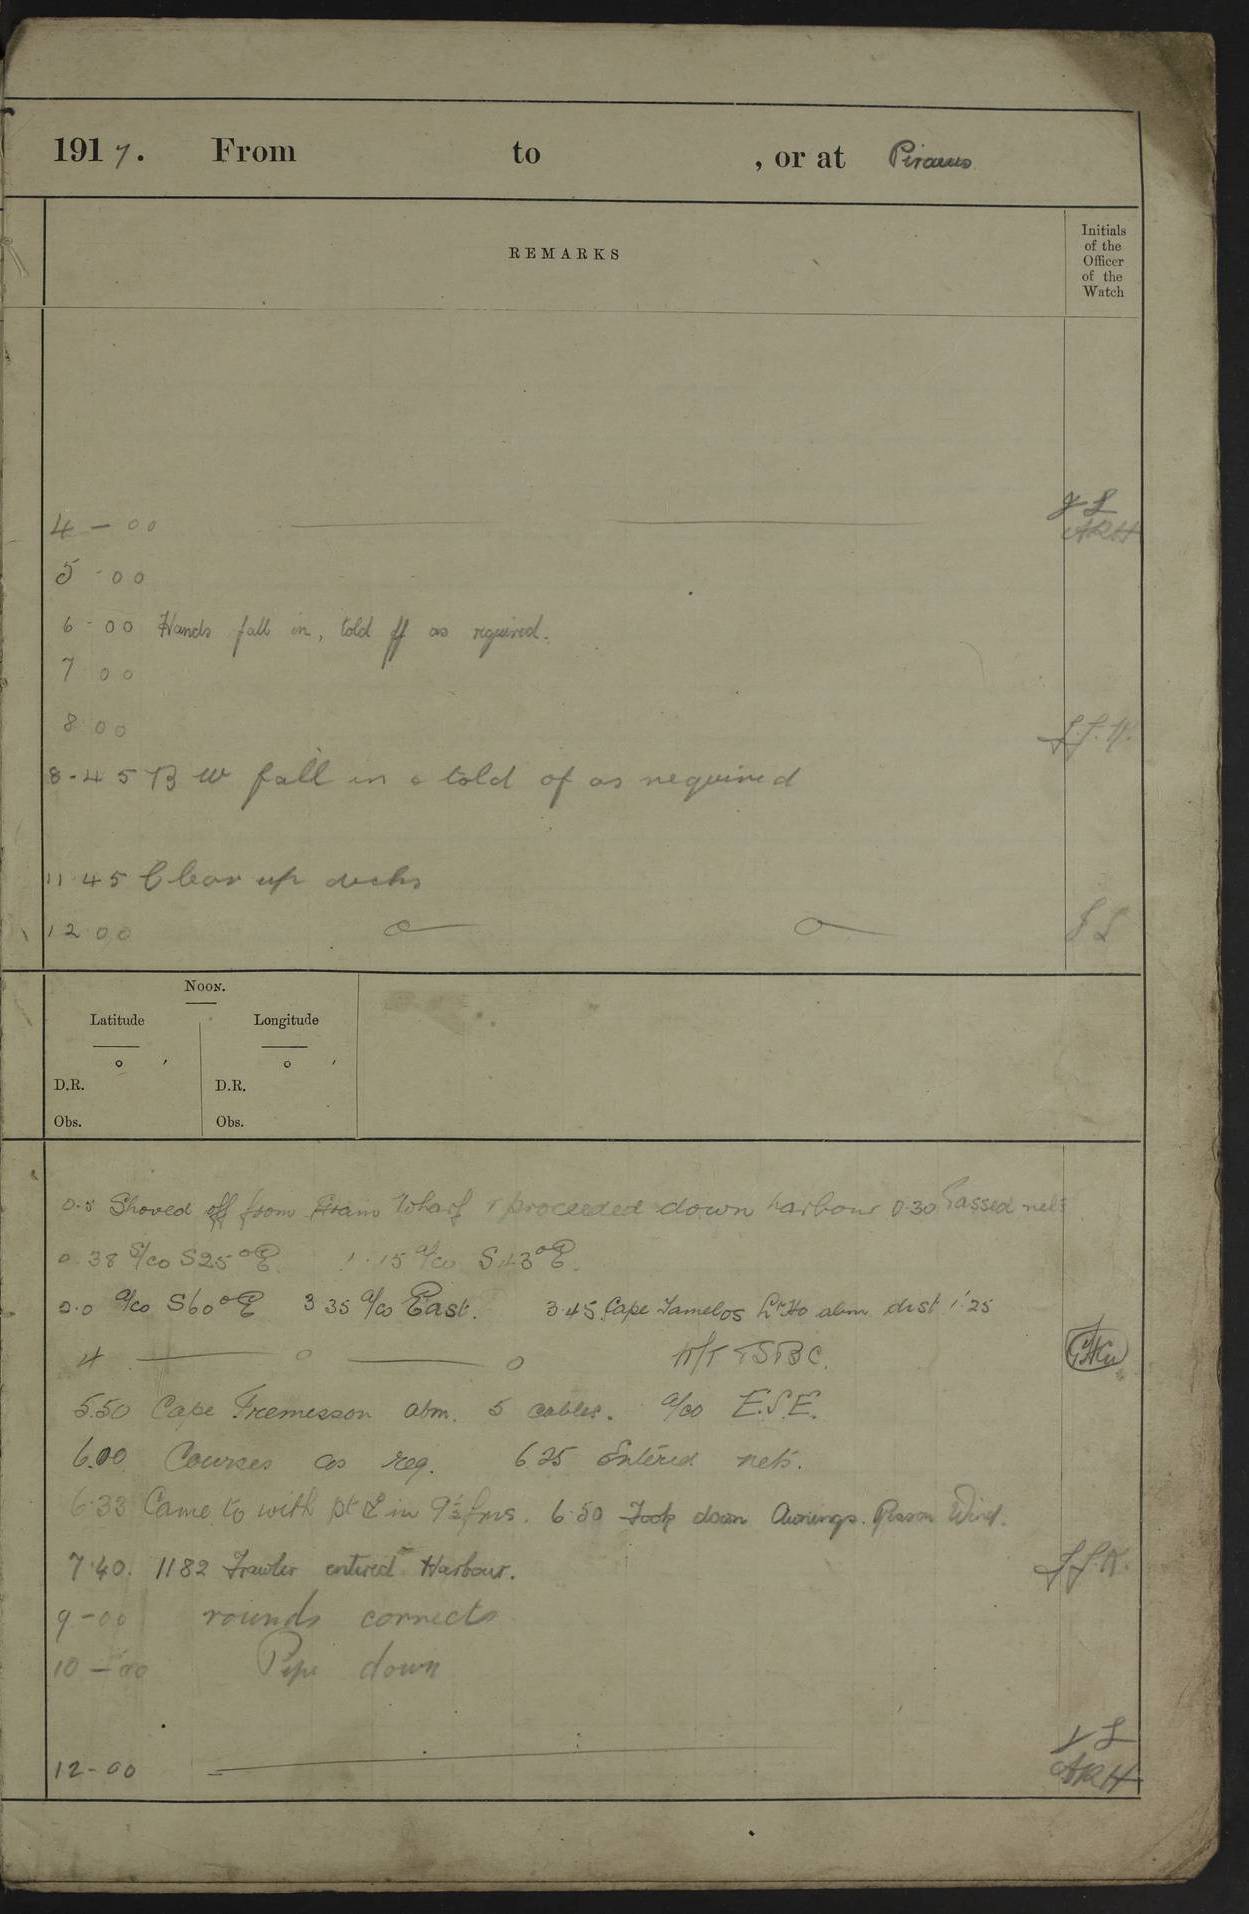 1917. From to , or at Piraeus
REMARKS
Initials
of the
Officer
of the
Watch
4 - 00
ARH
5 - 00
6 - 00 Hands fall in, told off as required.
7 00
8 00 J.J.K.
8-45 B W fall in & told of as required
11 45 Clear up decks
12 00
NOON.
Latitude Longitude
D.R. D.R.
Obs. Obs.
0.5 Shoved off from Wharf & proceeded down harbour 0.30 Passed nets
0.38 S/co S25°E 1.15 a/co S43°E.
a/co S60°E 3 35 a/co East. 3.45 Cape Tamelos Lt Ho abm dist 1'.25
4
5.50 Cape abm. 5 cables. a/co E.S.E.
6.00 Courses as req. 6.25 Entered nets.
6.33 Came to with pt in 9½ fms. 6.50 Took down Awnings. Wind.
7.40. 1182 Trawler entered Harbour. J.J.K.
9-00 rounds corrects
10-00 Pipe down
12-00
ARH